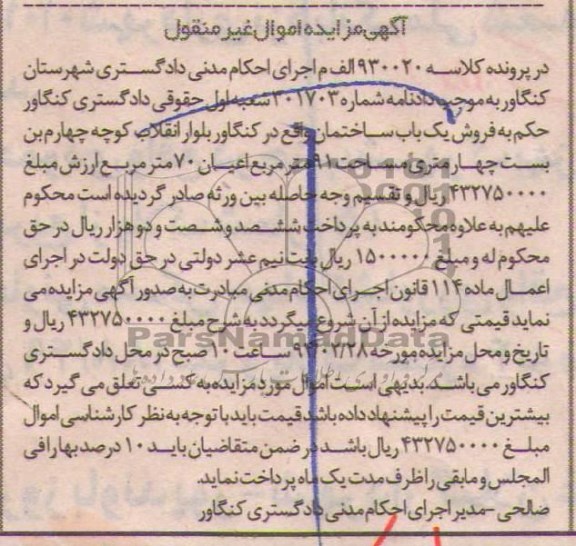 آگهی مزایده اموال غیر منقول
در پرونده کلاسه ۹۳۰۰۲۰ الف م اجرای احکام مدنی دادگستری شهرستان
کنگاور به موجب دادنامه شماره ۳۰۱۷۰۳ شعبه اول حقوقی دادگستری کنگاور
حکم به فروش یک باب ساختمان واقع در کنگاور بلوار انقلاب کوچه چهارم بن
بست چهار متری مساحت ۹۱ متر مربع اعیان ۷۰ متر مربع ارزش مبلغ
۴۳۲۷۵۰۰۰۰ ریال و تقسیم وجه حاصله بین ورثه صادر گردیده است محکوم
علیهم به علاوه محکومند به پرداخت ششصد و شصت و دو هزار ریال در حق
محکوم له و مبلغ ۱۵۰۰۰۰۰ ریال بابت نیم عشر دولتی در حق دولت در اجرای
اعمال ماده ۱۱۴ قانون اجرای احکام مدنی مبادرت به صدور آگهی مزایده می
نماید قیمتی که مزایده از آن شروع میگردد به شرح مبلغ ۴۳۲۷۵۰۰۰۰ ریال و
تاریخ و محل مزایده مورخه ۹۴/۰۲/۲۸ ساعت ۱۰ صبح در محل دادگستری
کنگاور می باشد. بدیهی است اموال مورد مزایده به کسی تعلق می گیرد که
بیشترین قیمت را پیشنهاد داده باشد قیمت باید با توجه به نظر کارشناسی اموال
مبلغ ۴۳۲۷۵۰۰۰۰ ریال باشد در ضمن متقاضیان باید ۱۰ درصد بها را فی
المجلس و مابقی را ظرف مدت یک ماه پرداخت نماید.
صالحی - مدیر اجرای احکام مدنی دادگستری کنگاور
ParsNamadData